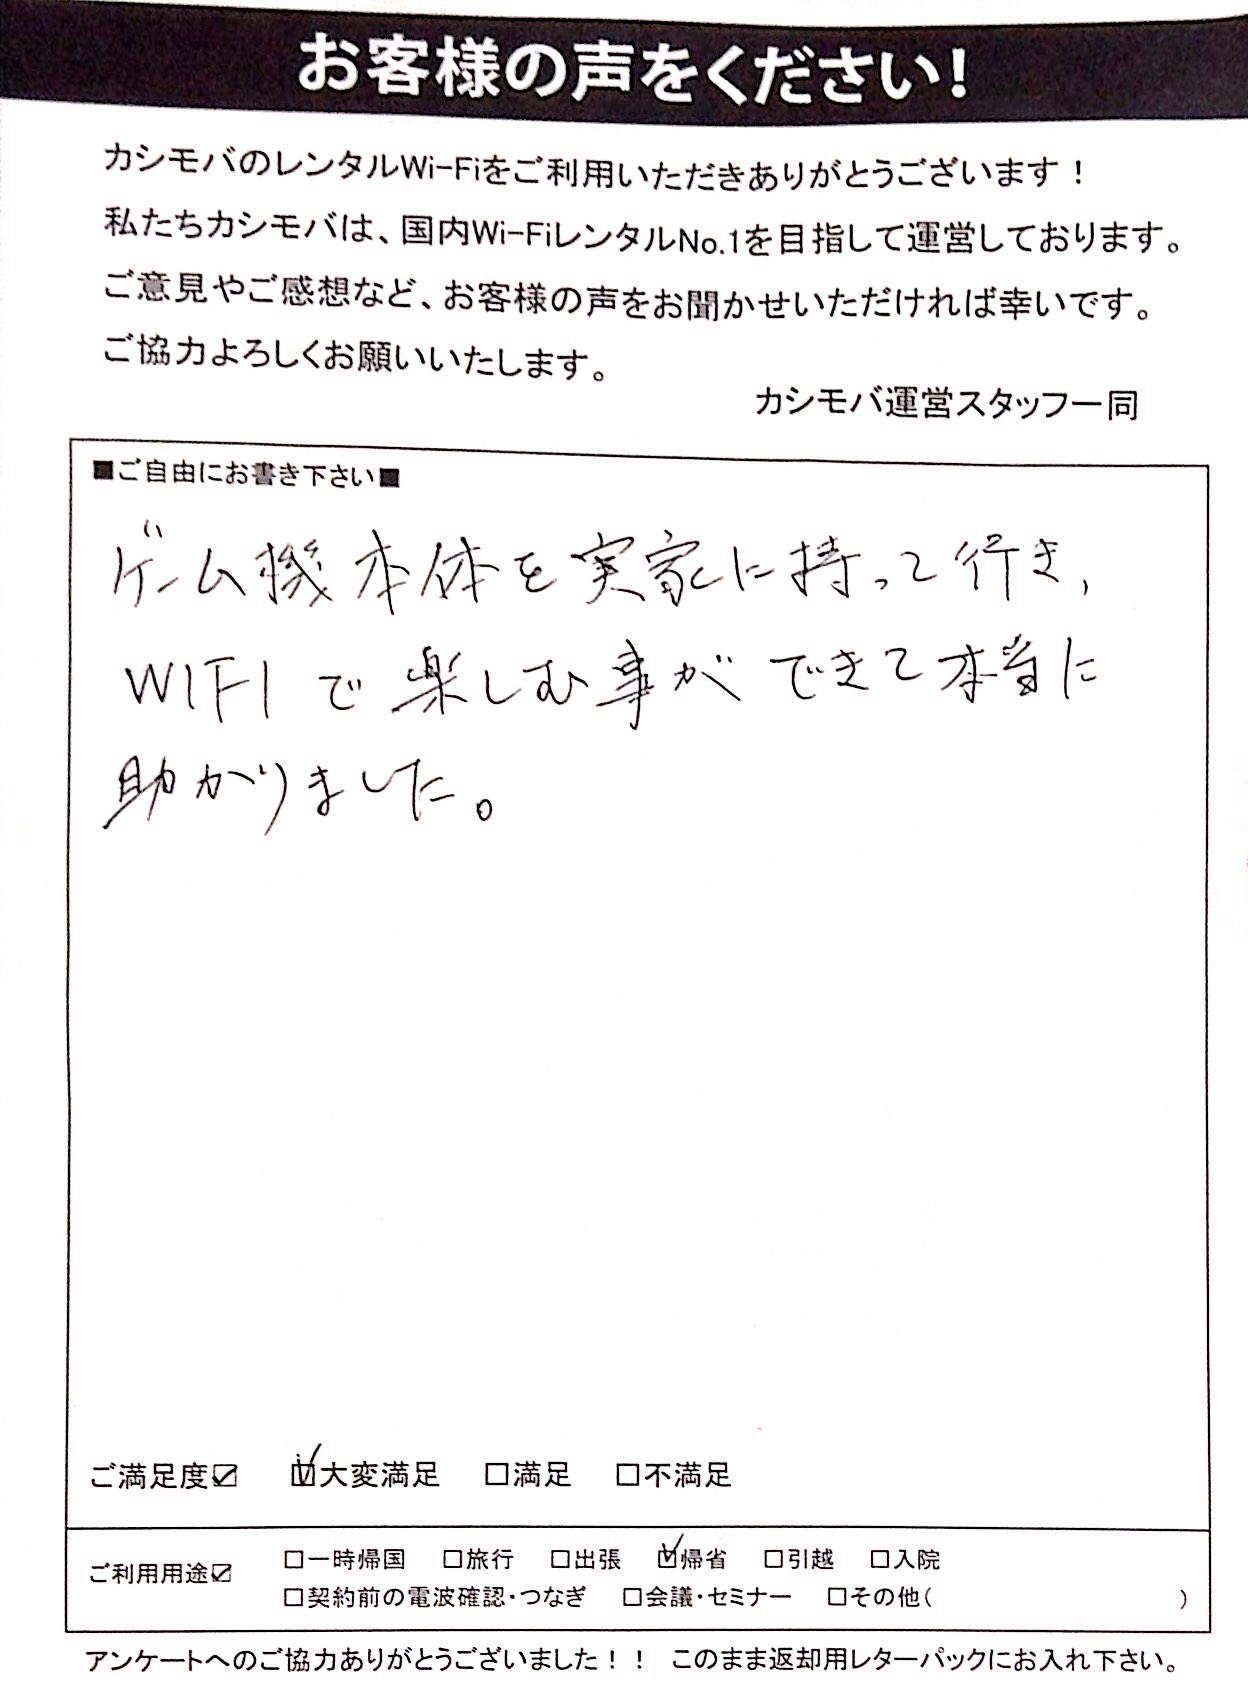 お客様の声をください！
カシモバのレンタルWi-Fiをご利用いただきありがとうございます！
私たちカシモバは、国内Wi-FiレンタルNo.1を目指して運営しております。
ご意見やご感想など、お客様の声をお聞かせいただければ幸いです。
ご協力よろしくお願いいたします。
カシモバ運営スタッフ一同
■ご自由にお書き下さい■
ゲーム機本体を実家に持って行き,
WIFIで楽しむ事ができて本当に
助かりました。
ご満足度☑ ☑大変満足 □満足 □不満足
ご利用用途☑ □一時帰国 □旅行 □出張 ☑帰省 □引越 □入院
□契約前の電波確認・つなぎ □会議・セミナー □その他( )
アンケートへのご協力ありがとうございました！！ このまま返却用レターパックにお入れ下さい。